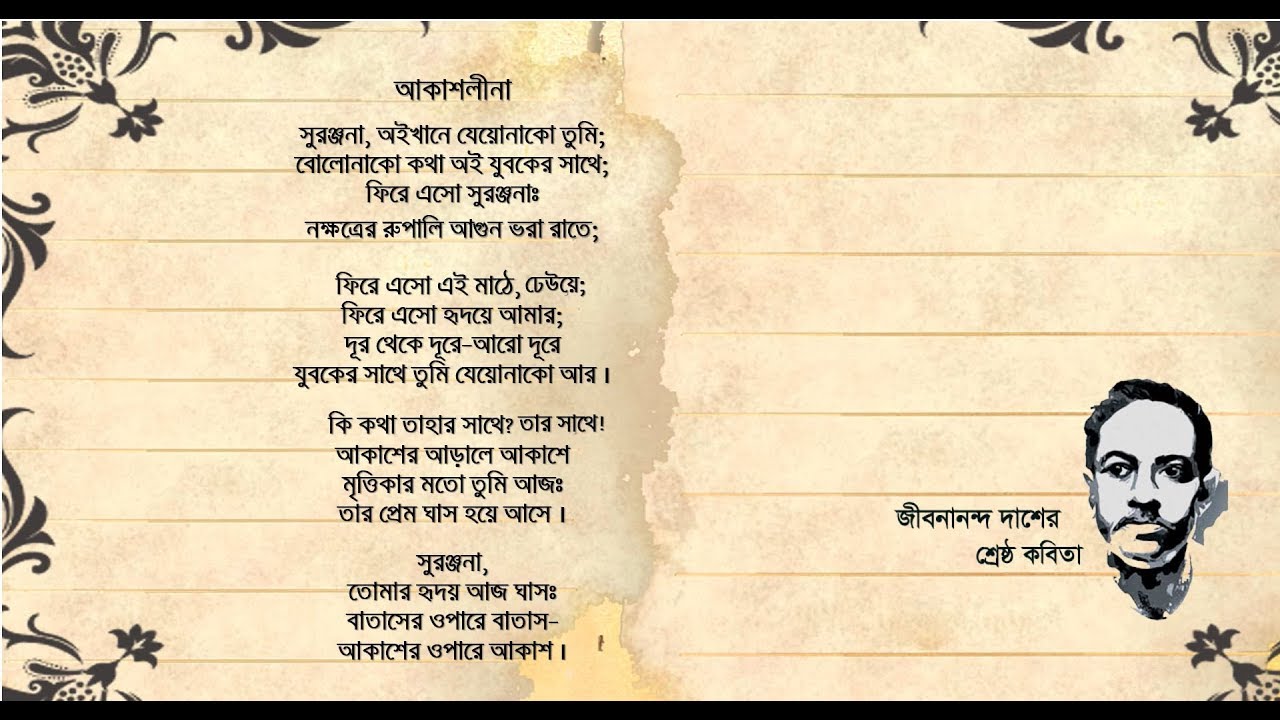 আকাশলীনা
সুরঞ্জনা, অইখানে যেয়োনাকো তুমি;
বোলোনাকো কথা অই যুবকের সাথে;
ফিরে এসো সুরঞ্জনাঃ
নক্ষত্রের রুপালি আগুন ভরা রাতে;
ফিরে এসো এই মাঠে, ঢেউয়ে;
ফিরে এসো হৃদয়ে আমার;
দূর থেকে দূরে-আরো দূরে
যুবকের সাথে তুমি যেয়োনাকো আর ।
কি কথা তাহার সাথে? তার সাথে!
আকাশের আড়ালে আকাশে
মৃত্তিকার মতো তুমি আজঃ
তার প্রেম ঘাস হয়ে আসে ।
সুরঞ্জনা,
তোমার হৃদয় আজ ঘাসঃ
বাতাসের ওপারে বাতাস-
আকাশের ওপারে আকাশ ।
জীবনানন্দ দাশের
শ্রেষ্ঠ কবিতা